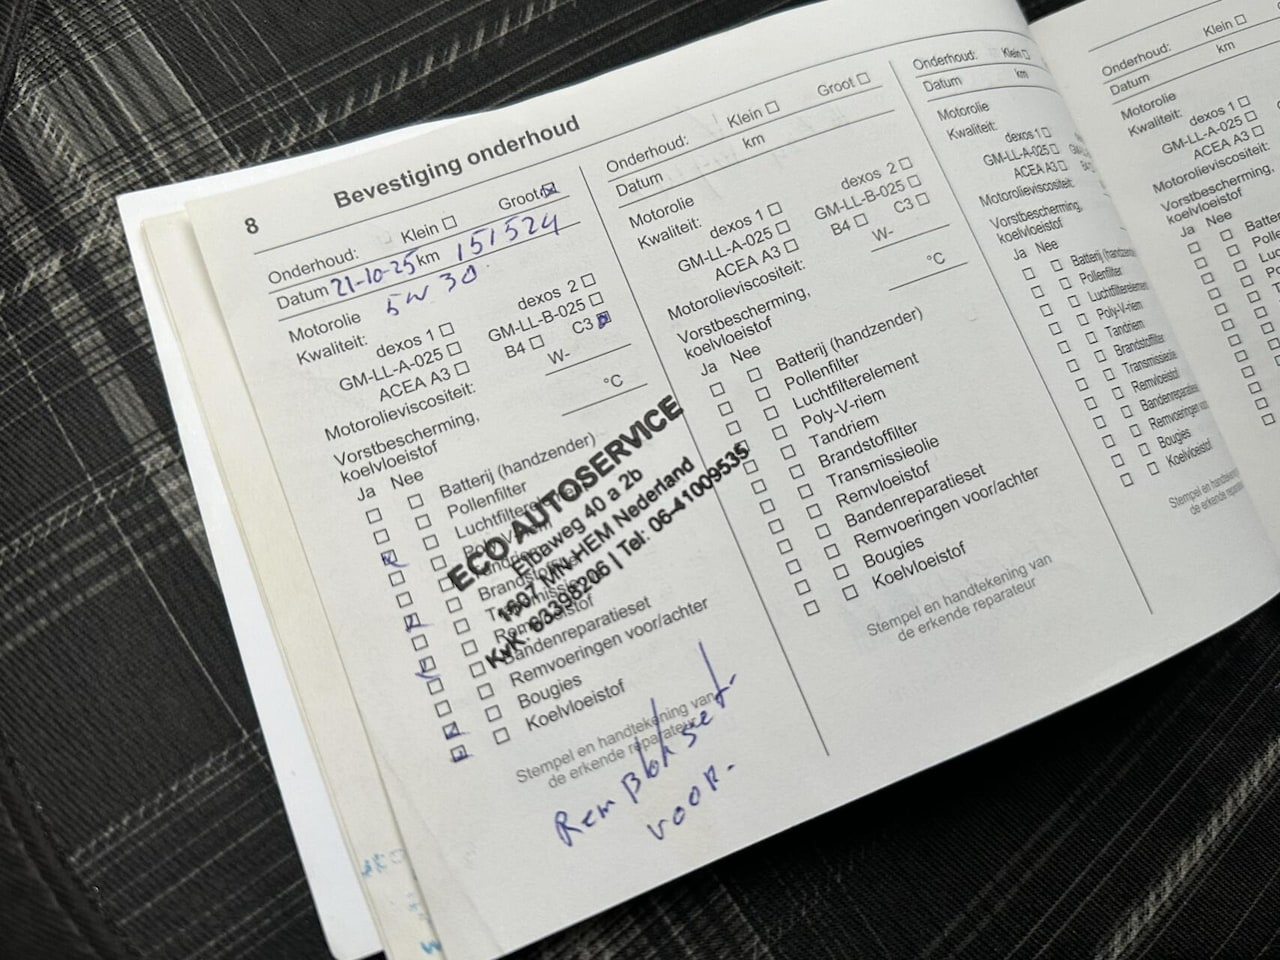 8
Bevestiging onderhoud
Onderhoud: Klein Groot
Datum 21-10-25 km 151524
Motorolie 5W30
Kwaliteit: dexos 1 dexos 2
GM-LL-A-025 GM-LL-B-025
ACEA A3 B4 C3
Motorolieviscositeit: W-
Vorstbescherming,
koelvloeistof °C
Ja Nee
Batterij (handzender)
Pollenfilter
Luchtfilterelement
Poly-V-riem
Tandriem
Brandstoffilter
Transmissieolie
Remvloeistof
Bandenreparatieset
Remvoeringen voor/achter
Bougies
Koelvloeistof
ECO AUTOSERVICE
Elbaweg 40 a 2b
1607 MN HEM Nederland
KvK: 63398206 | Tel: 06-41009535
Stempel en handtekening van
de erkende reparateur
Rem Blok set
voor.
Onderhoud: Klein Groot
Datum km
Motorolie
Kwaliteit: dexos 1 dexos 2
GM-LL-A-025 GM-LL-B-025
ACEA A3 B4 C3
Motorolieviscositeit: W-
Vorstbescherming,
koelvloeistof °C
Ja Nee
Batterij (handzender)
Pollenfilter
Luchtfilterelement
Poly-V-riem
Tandriem
Brandstoffilter
Transmissieolie
Remvloeistof
Bandenreparatieset
Remvoeringen voor/achter
Bougies
Koelvloeistof
Stempel en handtekening van
de erkende reparateur
Onderhoud: Klein
Datum km
Motorolie
Kwaliteit: dexos 1
GM-LL-A-025
ACEA A3
Motorolieviscositeit:
Vorstbescherming,
koelvloeistof
Ja Nee
Batterij (handz
Pollenfilter
Luchtfilterelem
Poly-V-riem
Tandriem
Brandstoffilter
Transmissie
Remvloeistof
Bandenreparaties
Remvoeringen voor
Bougies
Koelvloeistof
Stempel en handteken
de erkende repara
Onderhoud: Klein
Datum km
Motorolie
Kwaliteit: dexos 1
GM-LL-A-025
ACEA A3
Motorolieviscositeit:
Vorstbescherming,
koelvloeistof
Ja Nee